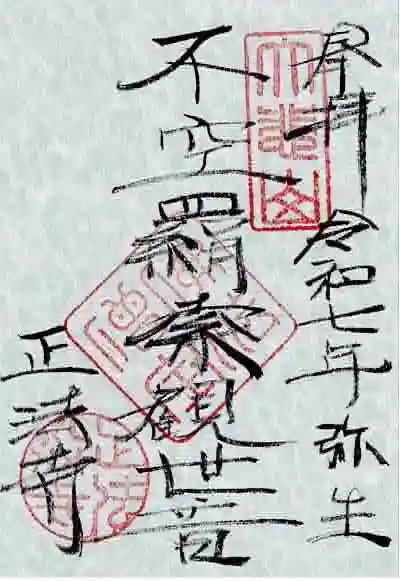 奉拝 令和七年弥生
不空羂索観世音
正法寺
大悲山